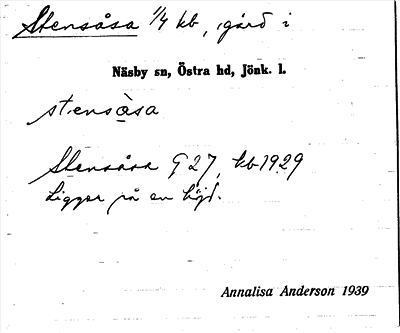 Stensåsa 1/4 kb, gård i
Näsby sn, Östra hd, Jönk. l.
stensåsa
Stensåsa G 27, kb 1929
Ligger på en höjd.
Annalisa Anderson 1939